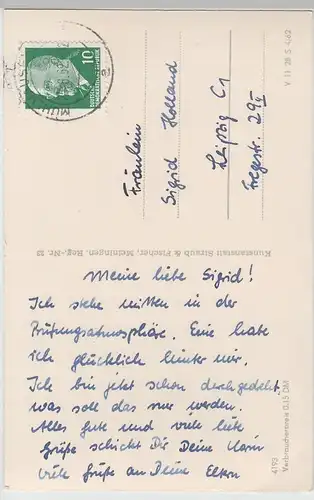 10
Fräulein
Sigrid Holland
Leipzig C1
Fregestr. 29 II
V 11 28 S 4/62
Kunstanstalt Straub & Fischer, Meiningen, Reg.-Nr. 12
Meine liebe Sigrid!
Ich stehe mitten in der
Prüfungsatmosphäre. Eine habe
ich glücklich hinter mir.
Ich bin jetzt schon durchgedreht
was soll das nur werden.
Alles gute und viele liebe
Grüße schickt Dir Deine Karin
Viele Grüße an Deine Eltern
4193
Verbraucherpreis 0.15 DM